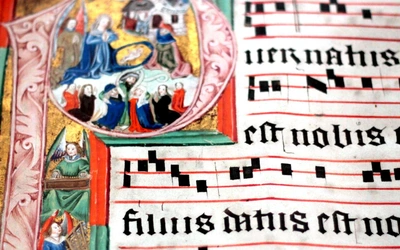 uer natus
est nobis
filius datus est